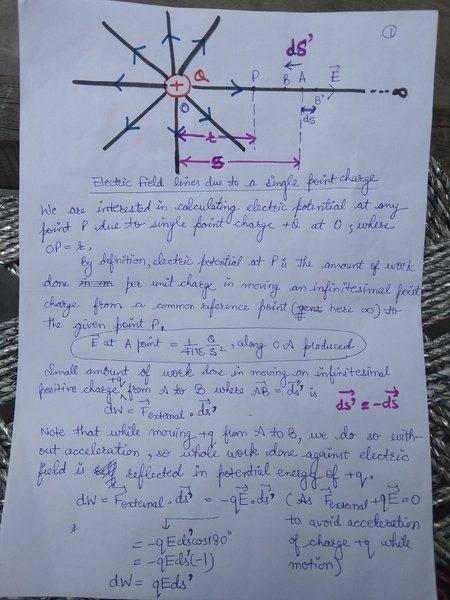 ①
dS'
Q
P B A E
O B'
∞
r ds
S
Electric Field lines due to a single point charge
We are interested in calculating electric potential at any
point P due to single point charge +Q at O, where
OP = r.
By definition, electric potential at P is The amount of work
done per unit charge in moving an infinitesimal point
charge from a common reference point (here ∞) to
the given point P.
E⃗ at A point = 1/4πε Q/S², along OA produced
Small amount of work done in moving an infinitesimal
positive charge +q from A to B where A⃗B = d⃗s' is
d⃗s' = -d⃗s
dW = F⃗external . d⃗s'
Note that while moving +q from A to B, we do so with-
out acceleration, so whole work done against electric
field is reflected in potential energy of +q.
dW = F⃗external . d⃗s' = -qE⃗ . d⃗s' (As F⃗external + qE⃗ = 0
to avoid acceleration
= -qEds'cos180° of charge +q while
= -qEds'(-1) motion)
dW = qEds'